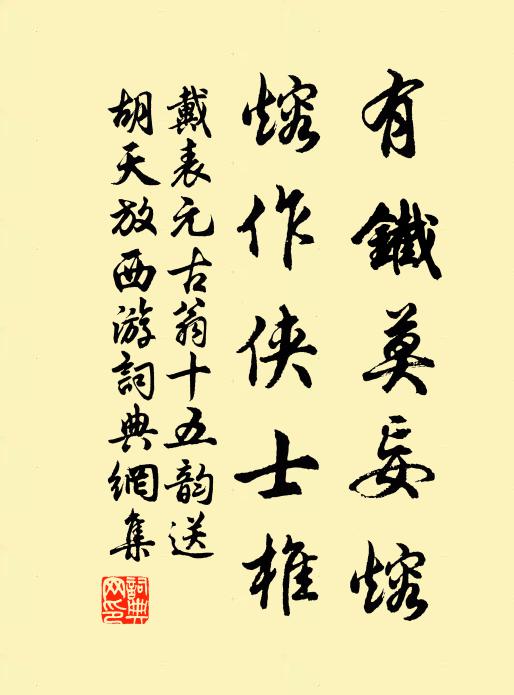 有鐵莫妄熔
熔作俠士椎
戴表元古翁十五韵送
胡天放西游詞典網集
詞典網印